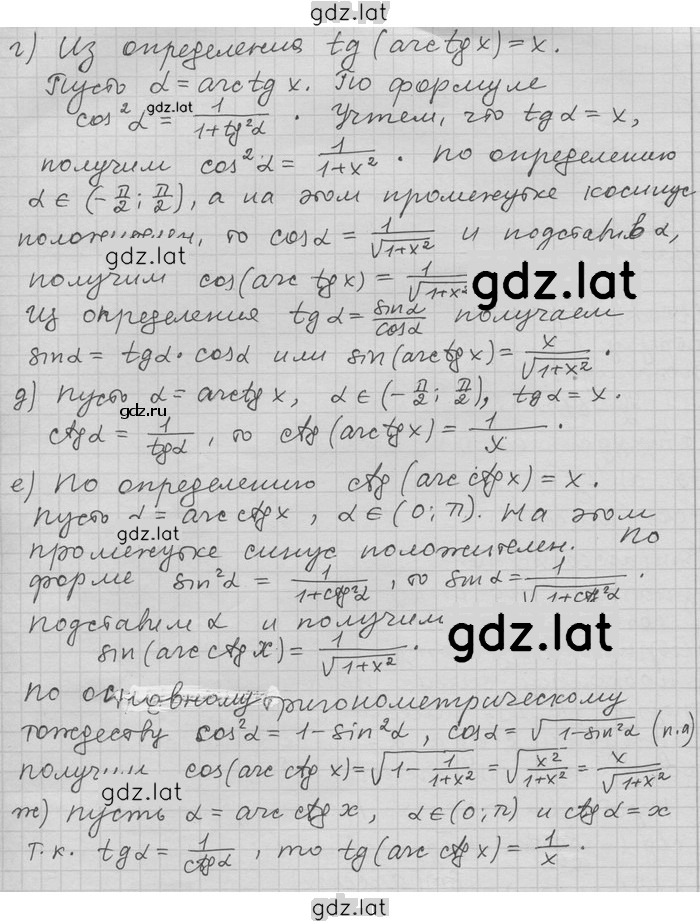 gdz.lat
г) Из определения tg (arctg x) = x.
Пусть α = arctg x. По формуле
gdz.lat
cos²α = 1/(1+tg²α) . Учтем, что tgα = x,
получим cos²α = 1/(1+x²) . По определению
α ∈ (-π/2; π/2), а на этом промежутке косинус
положителен, то cosα = 1/√(1+x²) и подставив α,
gdz.lat
получим cos(arc tgx) = 1/√(1+x²)
gdz.lat
Из определения tgα = sinα/cosα получаем
sinα = tgα · cosα или sin(arctgx) = x/√(1+x²) .
д) Пусть α = arctg x, α ∈ (-π/2; π/2), tgα = x.
gdz.ru
ctgα = 1/tgα , то ctg (arctgx) = 1/x .
е) По определению ctg (arc ctg x) = x.
Пусть α = arc ctg x , α ∈ (0; π). На этом
gdz.lat
промежутке синус положителен. По
форме sin²α = 1/(1+ctg²α) , то sinα = 1/√(1+ctg²α) .
подставим α и получим
gdz.lat
sin (arc ctg x) = 1/√(1+x²) .
По основному тригонометрическому
тождеству cos²α = 1-sin²α , cosα = √(1-sin²α) (п.а)
получим cos(arc ctg x) = √(1 - 1/(1+x²)) = √(x²/(1+x²)) = x/√(1+x²)
gdz.lat
ж) Пусть α = arc ctg x , α ∈ (0; π) и ctgα = x
т.к. tgα = 1/ctgα , то tg (arc ctg x) = 1/x .
gdz.lat